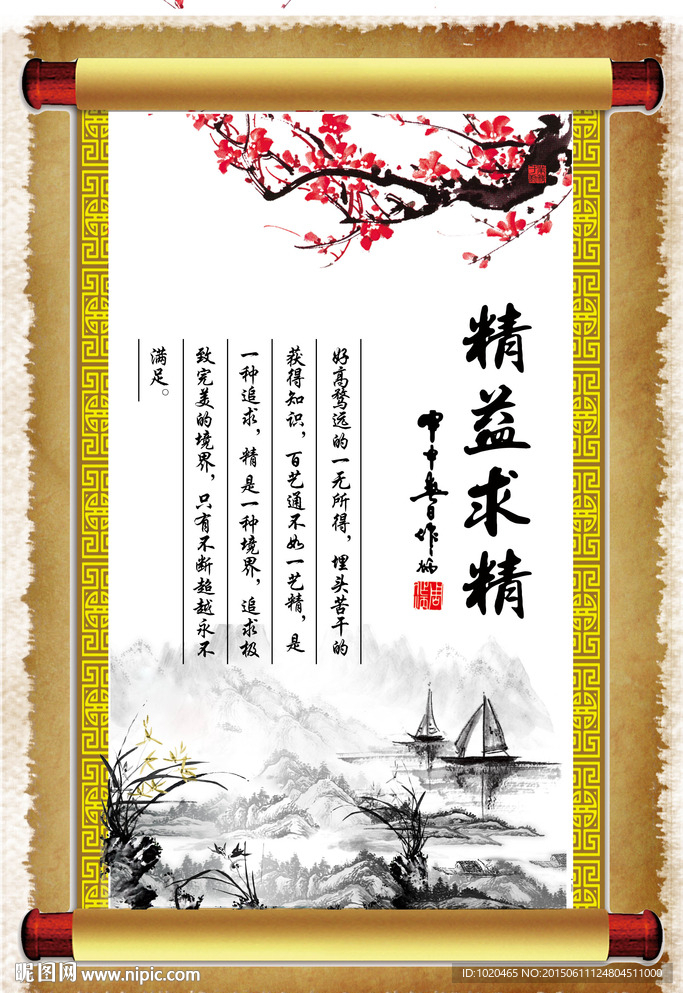 精益求精
好高骛远的一无所得，埋头苦干的
获得知识，百艺通不如一艺精，是
一种追求，精是一种境界，追求极
致完美的境界，只有不断超越永不
满足。
昵图网 www.nipic.com
ID:1020465 NO:20150611124804511000